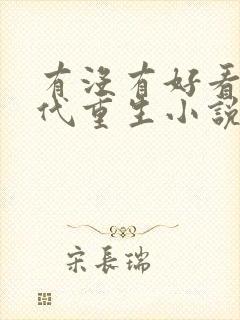 有没有好看
代重生小說
宋長瑞